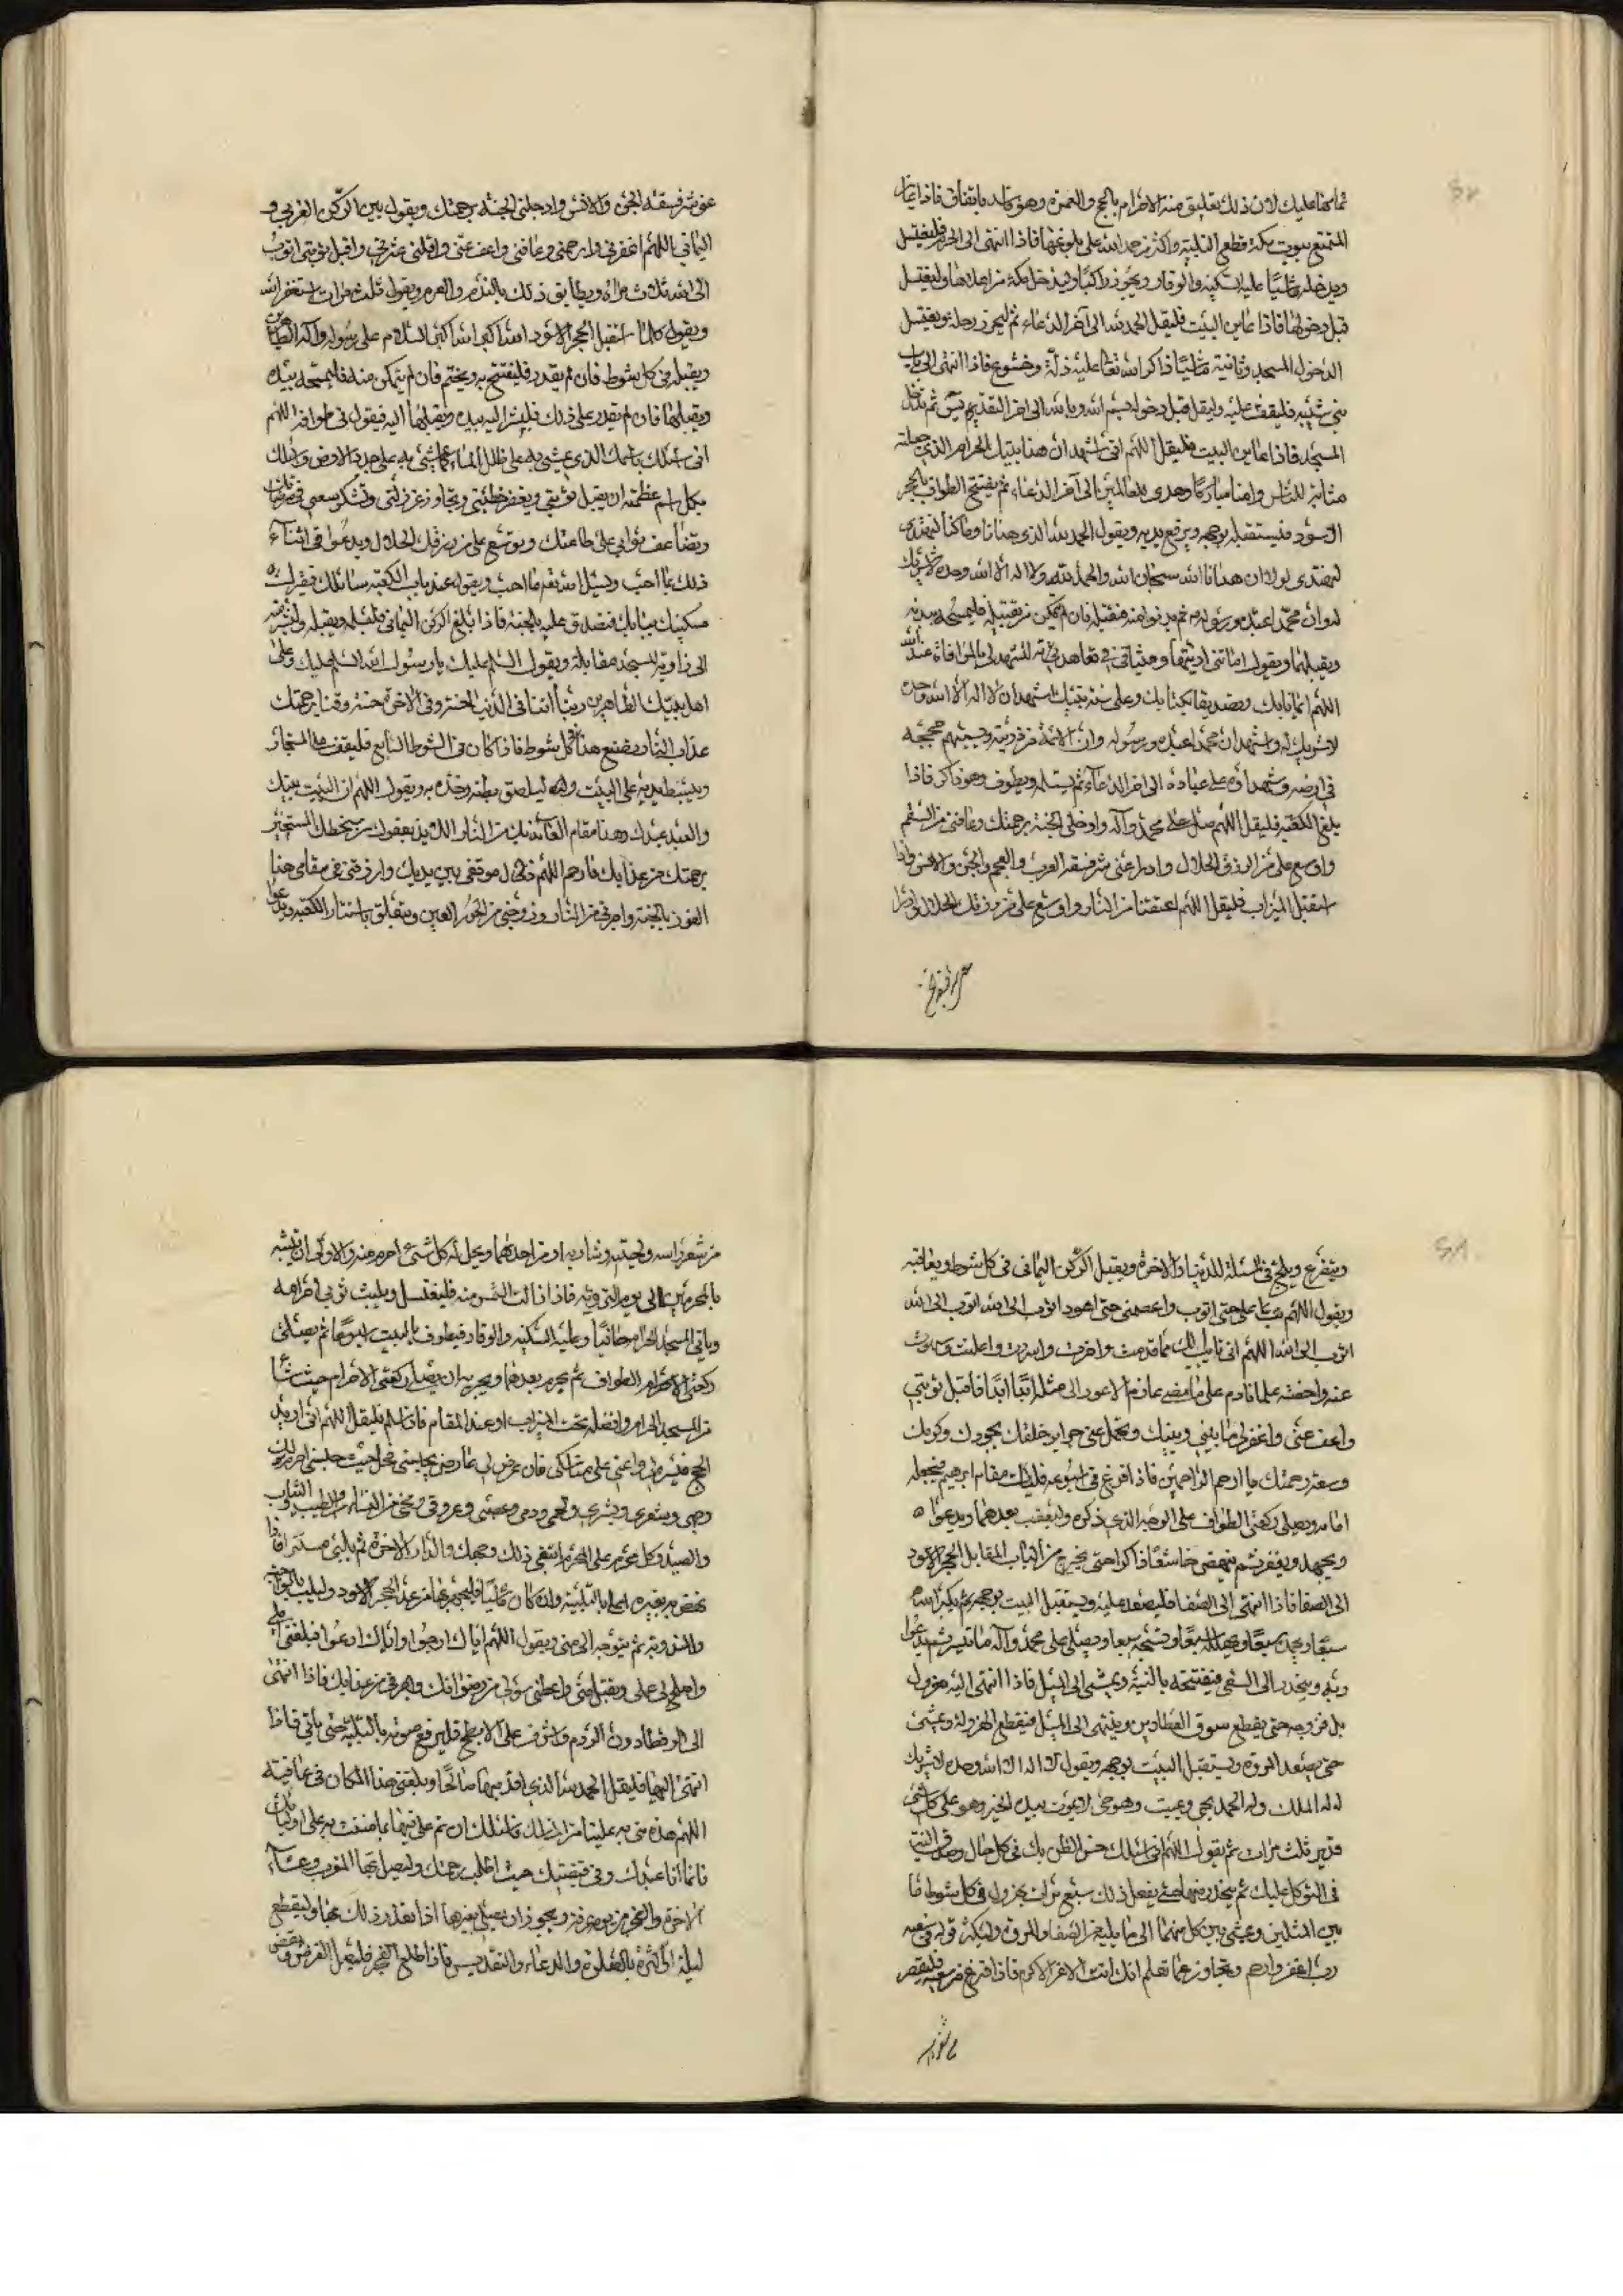 تمامها عليك لان ذلك تعليق منه الاحرام بالحج والعمرة وهو فاسد باتفاق فاذا عاين
المتمتع بيوت مكة قطع التلبية واكثر من حمد الله على بلوغها فاذا انتهى الى الحرم فليغتسل
ويدخله ماشيا عليه السكينة والوقار ويجوز راكبا وليدخل مكة من اعلاها وليغتسل
قبل دخولها فاذا عاين البيت فليقل الحمد لله الى آخر الدعاء ثم ليحرز رحله ويغتسل
الدخول المسجد وثانية ماشيا ذاكرا لله تعالى عليه ذلة وخشوع فاذا انتهى الى باب
بني شيبة فليقف عليه وليقل قبل دخوله بسم الله وبالله الى اخر التقديم ثم يدخل
المسجد فاذا عاين البيت فليقل اللهم اني اشهد ان هذا بيتك الحرام الذي جعلته
مثابة للناس وامنا مباركا وهدى للعالمين الى آخر الدعاء ثم يفتتح الطواف بالحجر
الاسود فليستقبله بوجهه ويرفع يديه ويقول الحمد لله الذي هدانا وما كنا لنهتدي
لنهتدي لولا ان هدانا الله سبحان الله والحمد لله ولا اله الا الله وحده لا شريك
له وان محمدا عبده ورسوله ثم يدنو منه فيقبله فان لم يتمكن من تقبيله فليمسحه بيديه
ويقبلهما ويقول امانتي اديتها وميثاقي تعاهدته لتشهد لي بالموافاة عند الله
اللهم ايمانا بك وتصديقا بكتابك وعلى سنة نبيك اشهد ان لا اله الا الله وحده
لا شريك له واشهد ان محمدا عبده ورسوله وان الائمة من ذريته حججه
في ارضه وشهداؤه على عباده الى اخر الدعاء ثم يستلمه ويطوف وهو ذاكر فاذا
بلغ الكعبة فليقل اللهم صل على محمد وآله وادخلني الجنة برحمتك وعافني من السقم
واوسع علي من الرزق الحلال وادرا عني شر فسقة العرب والعجم والجن والانس واذا
استقبل الميزاب فليقل اللهم اعتقنا من النار واوسع علي من رزقك الحلال وادرا
عني شر فسقة الجن والانس وادخلني الجنة برحمتك ويقول بين الركن الغربي و
اليماني اللهم اغفر لي وارحمني وعافني واعف عني واقلني عثرتي واقبل توبتي اتوب
الى الله ثلاث مرات ويطابق ذلك بالندم والعزم ويقول ثلث مرات استغفر الله
ويقول كلما استقبل الحجر الاسود الله اكبر الله اكبر السلام على رسول الله وآله الطاهرين
ويقبله في كل شوط فان لم يقدر فليفتتح به ويختم فان لم يتمكن منه فليمسحه بيده
ويقبلها فان لم يقدر على ذلك فليشر اليه بيده ويقبلها فيقول في طوافه اللهم
اني اسئلك باسمك الذي يمشى به على ظلل الماء كما يمشى به على جدد الارض واسئلك
بكل اسم عظمته ان تقبل توبتي وتغفر خطيئتي وتجاوز عن زلتي وتشكر سعيي في مرضاتك
وتضاعف ثوابي على طاعتك وتوسع علي من رزقك الحلال ويدعو في اثناء
ذلك بما احب ويسئل الله نعم ما احب ويقول عند باب الكعبة سائلك فقيرك
مسكينك ببابك فتصدق عليه بالجنة فاذا بلغ الركن اليماني فليستلمه ويقبله
الى زاوية المسجد مقابلة ويقول السلم عليك يا رسول الله السلم عليك وعلى
اهل بيتك الطاهرين ربنا آتنا في الدنيا حسنة وفي الاخرة حسنة وقنا برحمتك
عذاب النار يصنع هذا في كل شوط فاذا كان في الشوط السابع فليقف على المستجار
ويبسط يديه على البيت وليلصق بطنه وخده به ويقول اللهم ان البيت بيتك
والعبد عبدك وهذا مقام العائذ بك من النار اللائذ بعفوك من سخطك المستجير
برحمتك من عذابك فارحم اللهم ذلي موقفي بين يديك وارزقني في مقامي هذا
الفوز بالجنة واجرني من النار وزوجني من الحور العين ويتعلق باستار الكعبة ويدعو
ويتضرع ويلح في المسئلة للدنيا والاخرة ويقبل الركن اليماني في كل شوط ويعانقه
ويقول اللهم تب علي حتى اتوب واعصمني حتى اعود اتوب الى الله اتوب الى الله
اتوب الى الله اللهم اني تائب اليك مما قدمت واخرت واسررت واعلنت
عنه واخفيته علما نادم على ما مضى عازم لا عود الى مثله ابدا ابدا فاقبل توبتي
واعف عني واغفر لي ما بيني وبينك وتحمل عني جرائر خلقك بجودك وكرمك
وسعة رحمتك يا ارحم الراحمين فاذا فرغ من اسبوعه فليات مقام ابرهيم فيجعله
امامه ويصلي ركعتي الطواف على الوجه الذي ذكره وليعقب بعدهما ويدعو
ويجتهد ويعفر ثم ينهض خاشعا ذاكرا حتى يخرج من الباب المقابل للحجر الاسود
الى الصفا فاذا انتهى الى الصفا فليصعد عليه ويستقبل البيت بوجهه ثم يكبر الله
سبعا ويحمد سبعا ويهلله سبعا ويسبحه سبعا ويصلي على محمد وآله ما تيسر ثم يدعو
ربه وينحدر الى السعي فيفتتحه بالنية ويمشي الى الميل فاذا انتهى اليه هرول
حتى يقطع سوق العطارين وينتهي الى الميل فيقطع الهرولة ويمشي
حتى يصعد المروة ويستقبل البيت بوجهه ويقول لا اله الا الله وحده لا شريك
له له الملك وله الحمد يحيي ويميت وهو حي لا يموت بيده الخير وهو على كل شيء
قدير ثلث مرات ثم يقول اللهم اني اسئلك حسن الظن بك في كل حال وصدق النية
في التوكل عليك ثم ينحدر منها حتى يفعل ذلك سبع مرات يهرول في كل شوط ما
بين الميلين ويمشي بين كل منهما الى ما يليه من الصفا والمروة وليكثر قوله في سعيه
رب اغفر وارحم وتجاوز عما تعلم انك انت الاعز الاكرم فاذا فرغ من سعيه فليقصر
من شعر راسه ولحيته وشاربه او من احدهما ويحل له كل شيء احرم منه والاولى ان يتشبه
بالمحرمين الى يوم التروية فاذا زالت الشمس منه فليغتسل ويلبس ثوبي احرامه
وياتي المسجد الحرام حافيا وعليه السكينة والوقار فيطوف بالبيت اسبوعا ثم يصلي
ركعتي الطواف ثم يحرم بعدهما ويجزيه ان يصلي ركعتي الاحرام حيث شاء
من المسجد الحرام وافضله تحت الميزاب او عند المقام فاذا سلم فليقل اللهم اني اريد
الحج فيسره لي واعني على مناسكي فان عرض لي عارض يحبسني فحلني حيث حبستني احرم لك
وجهي وشعري وبشري ولحمي ودمي وعصبي وعروقي ومخي من النساء والطيب والثياب
والصيد وكل محرم على المحرم ابتغي ذلك وجهك والدار الاخرة ثم يلبي مسترا فاذا
نهض به بعيره اعلن بالتلبية وان كان ماشيا فليجهر بها من عند الحجر الاسود وليلب بالواجبة
والمندوبة ثم يتوجه الى منى ويقول اللهم اياك ارجو واياك ادعو فبلغني املي
واصلح لي عملي وتقبل مني واعطني سؤلي من رضوانك واجرني من عذابك فاذا انتهى
الى الرقطاء دون الردم واشرف على الابطح فليرفع صوته بالتلبية حتى ياتي فاذا
انتهى اليها فليقل الحمد لله الذي اقدمنيها صالحا وبلغني هذا المكان في عافية
اللهم هذه منى مما مننت به علينا من المناسك فاسئلك ان تمن علي فيها بما مننت به على اوليائك
فانما انا عبدك وفي قبضتك حيث اطلب رحمتك وليصل بها المغرب وعشاء
الاخرة والفجر من يوم عرفة ويجوز ان يصلي بغيرها اذا تعذر ذلك بها وليقطع
ليلة اكثره بالصلوة والدعاء والتقديس فاذا طلع الفجر فليصل الفرض